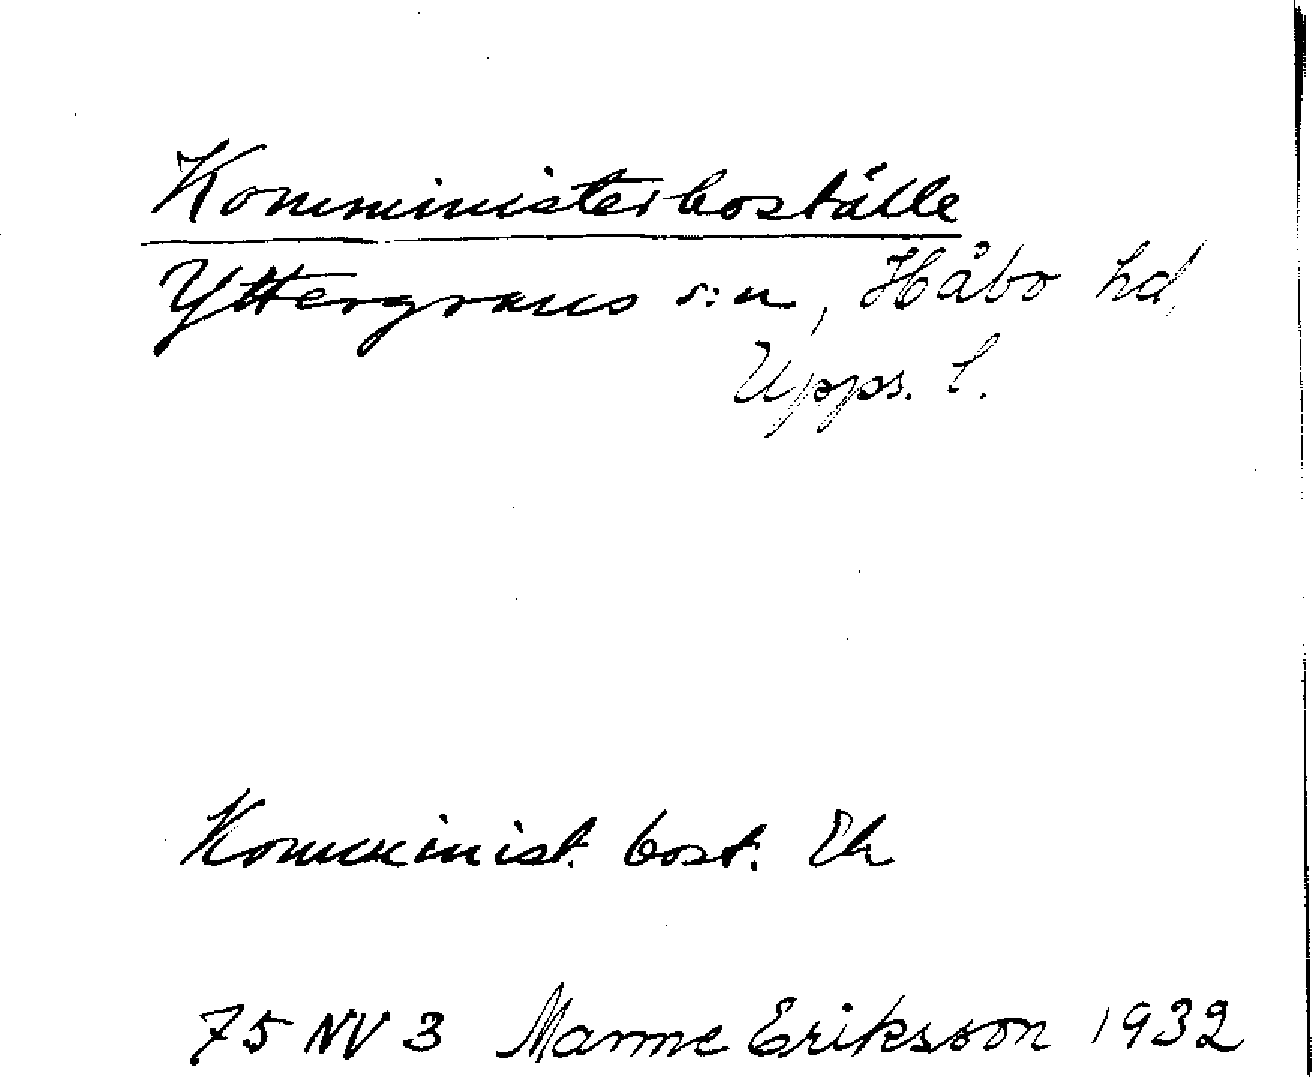 Komministerboställe
Yttergrans s:n, Håbo hd,
Upps. l.
Komminist. bost. Ek
75 NV 3 Manne Eriksson 1932